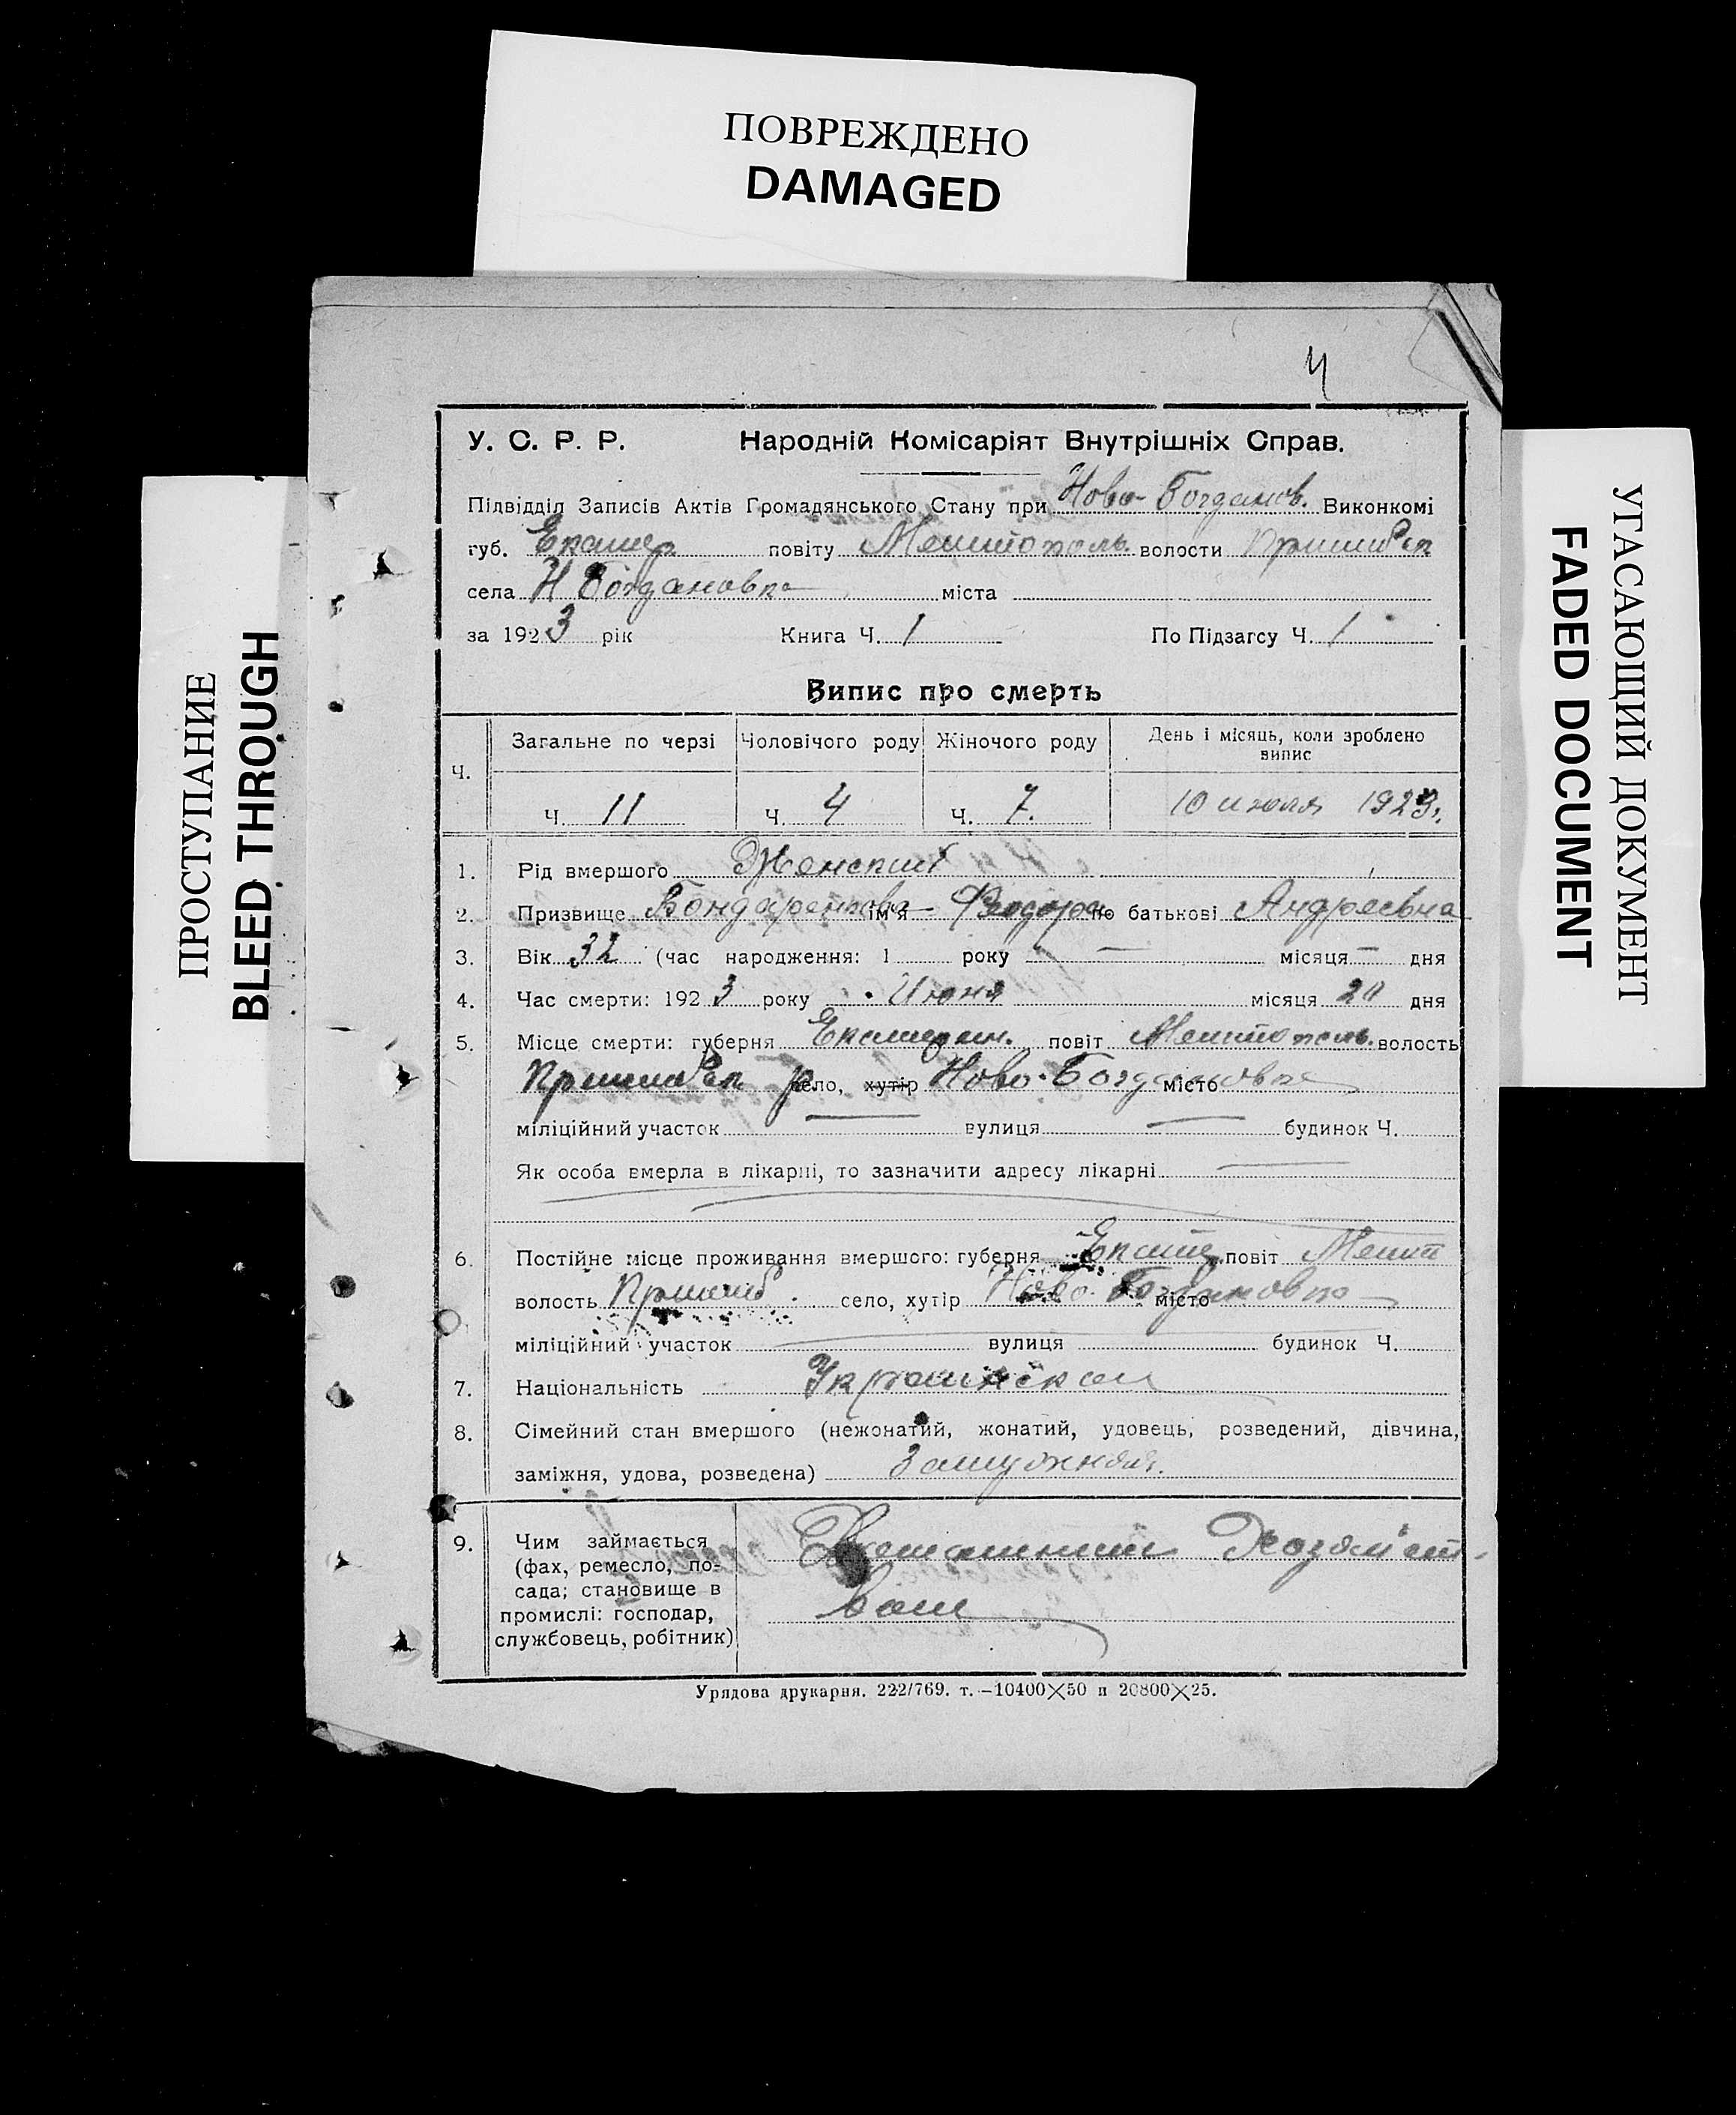 ПОВРЕЖДЕНО
DAMAGED
ПРОСТУПАНИЕ
BLEED THROUGH
УГАСАЮЩИЙ ДОКУМЕНТ
FADED DOCUMENT
4
У. С. Р. Р. Народній Комісаріят Внутрішніх Справ.
Підвідділ Записів Актів Громадянського Стану при Ново-Богданов. Виконкомі
губ. Екатер повіту Мелитополь. волости Пришибск
села Н Богдановка міста
за 1923 рік Книга Ч. 1 По Підзагсу Ч. 1
Випис про смерть
Ч. Загальне по черзі Чоловічого роду Жіночого роду День і місяць, коли зроблено випис
Ч. 11 Ч. 4 Ч. 7. 10 июля 1923г.
1. Рід вмершого Женский
2. Призвище Бондаренкова ім'я Феодора по батькові Андреевна
3. Вік 32 (час народження: 1 року — місяця — дня
4. Час смерти: 1923 року Июня місяця 20 дня
5. Місце смерти: губерня Екатерин. повіт Мелитополь. волость
Пришибск село, хутір Ново-Богдановка місто
міліційний участок — вулиця — будинок Ч.
Як особа вмерла в лікарні, то зазначити адресу лікарні —
6. Постійне місце проживання вмершого: губерня Екате повіт Мелит
волость Пришиб. село, хутір Ново-Богдановка місто
міліційний участок вулиця будинок Ч.
7. Національність Украинская
8. Сімейний стан вмершого (нежонатий, жонатий, удовець, розведений, дівчина,
заміжня, удова, розведена) Замужняя.
9. Чим займається (фах, ремесло, посада; становище в промислі: господар, службовець, робітник) Домашним Хозяйст-
вом
Урядова друкарня. 222/769. т.—10400×50 п 20800×25.